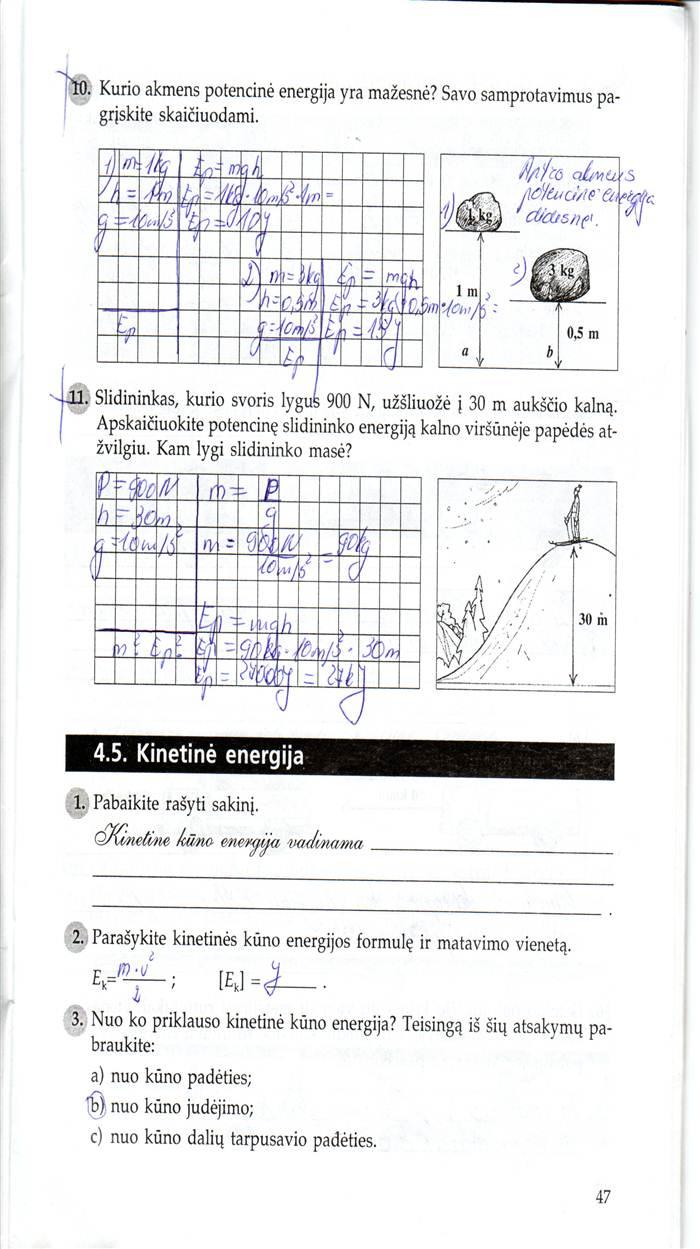 10. Kurio akmens potencinė energija yra mažesnė? Savo samprotavimus pa-
grįskite skaičiuodami.
1) m=1kg Ep=mgh
h=1m Ep=1kg·10m/s²·1m=
g=10m/s² Ep=10J
Ep
2) m=3kg Ep=mgh
h=0,5m Ep=3kg·0,5m·10m/s²=
g=10m/s² Ep=15J
Ep
akmens
potencinė energija
didesnė.
1) 1 kg
2) 3 kg
1 m
0,5 m
a b
11. Slidininkas, kurio svoris lygus 900 N, užšliuožė į 30 m aukščio kalną.
Apskaičiuokite potencinę slidininko energiją kalno viršūnėje papėdės at-
žvilgiu. Kam lygi slidininko masė?
P=900N m=P/g
h=30m
g=10m/s² m=900N/10m/s²=90kg
Ep=mgh
m-? Ep-? Ep=90kg·10m/s²·30m
Ep=27000J=27kJ
30 m
4.5. Kinetinė energija
1. Pabaikite rašyti sakinį.
Kinetine kūno energija vadinama
.
2. Parašykite kinetinės kūno energijos formulę ir matavimo vienetą.
Ek=m·v²/2 ; [Ek] = J .
3. Nuo ko priklauso kinetinė kūno energija? Teisingą iš šių atsakymų pa-
braukite:
a) nuo kūno padėties;
b) nuo kūno judėjimo;
c) nuo kūno dalių tarpusavio padėties.
47